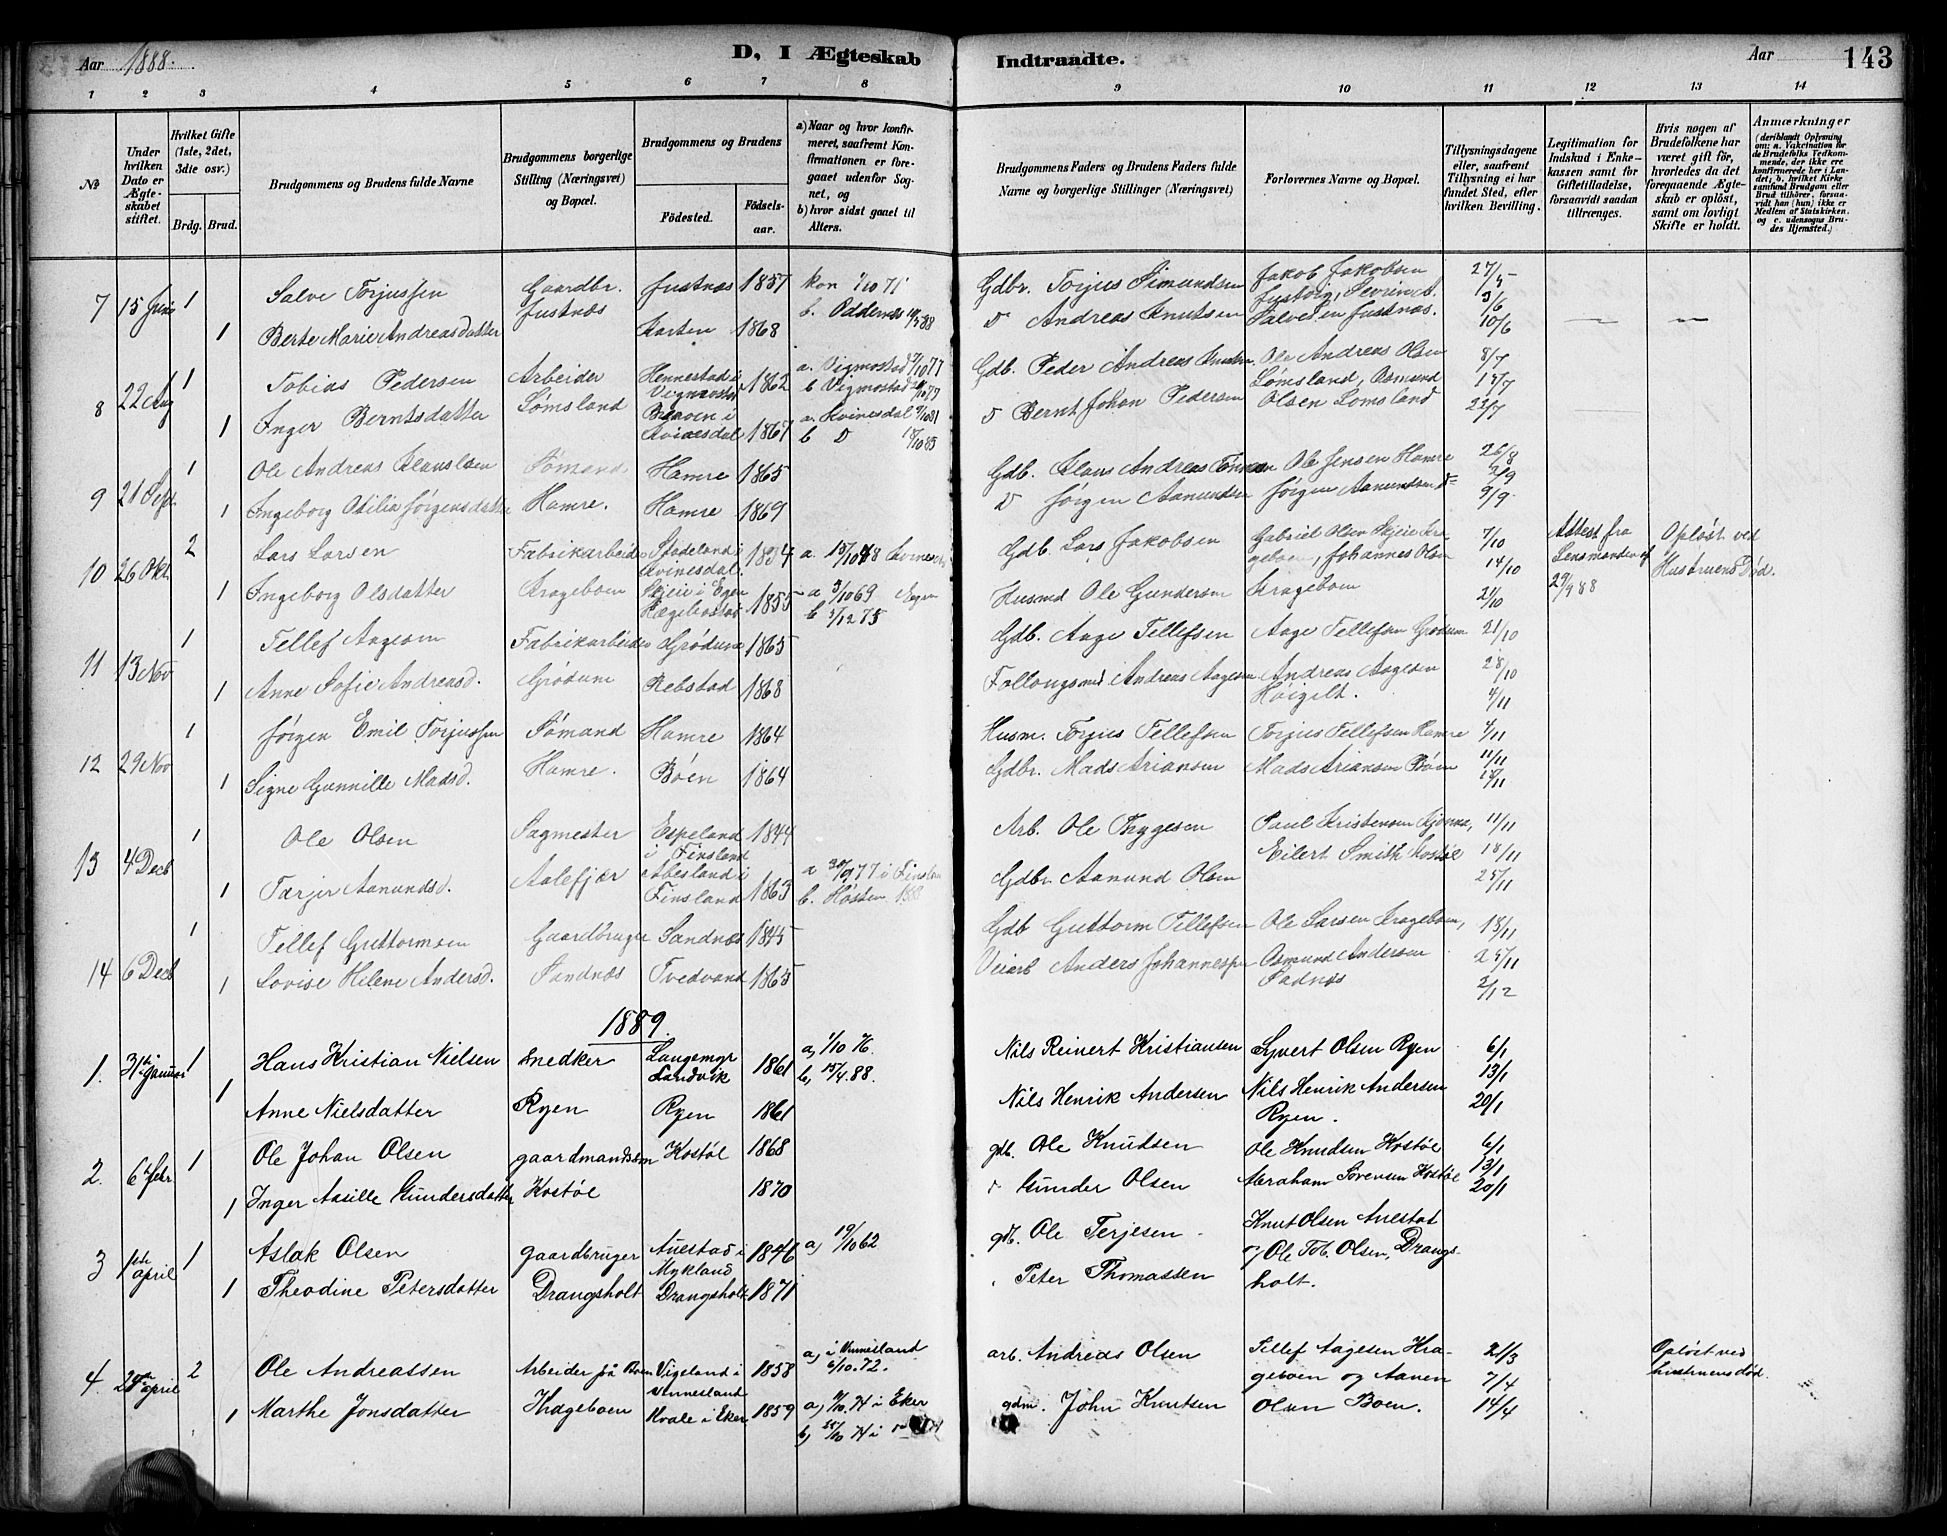 Aar 1888. D, I Ægteskab Indtraadte. Aar 143
1 2 3 4 5 6 7 8 9 10 11 12 13 14
№
Under hvilken Dato er Ægteskabet stiftet.
Hvilket Gifte (1ste, 2det, 3dte osv.)
Brdg. Brud.
Brudgommens og Brudens fulde Navne
Brudgommens borgerlige Stilling (Næringsvei) og Bopæl.
Brudgommens og Brudens
Fødested. Fødselsaar.
a) Naar og hvor konfirmeret, saafremt Konfirmationen er foregaaet udenfor Sognet, og
b) hvor sidst gaaet til Alters.
Brudgommens Faders og Brudens Faders fulde Navne og borgerlige Stillinger (Næringsvei)
Forlovernes Navne og Bopæl.
Tillysningsdagene eller, saafremt Tillysning ei har fundet Sted, efter hvilken Bevilling.
Legitimation for Indskud i Enkekassen samt for Giftetilladelse, forsaavidt saadan tiltrænges.
Hvis nogen af Brudefolkene har været gift før, hvorledes da det foregaaende Ægteskab er opløst, samt om lovligt Skifte er holdt.
Anmærkninger (deriblandt Oplysning om: a. Vakcination for de Brudefolks Vedkommende, der ikke ere konfirmerede her i Landet; b. hvilket Kirkesamfund Brudgom eller Brud tilhører, forsaavidt han (hun) ikke er Medlem af Statskirken, og c. udensogns Brudes Hjemsted.)
7 15 Juni 1 Salve Torjussen Gaardbr. Justnæs 1857 kon 1/10 71 Gdbr. Torjus Simundsen Jakob Jakobsen 27/5
Justnæs b. Oddernes Justvig, Severin A. 3/6
1 Berte Marie Andreasdatter Aarten 1868 D Andreas Knutsen Salvesen Justnæs. 10/6
8 22 Aug 1 Tobias Pedersen Arbeider Hennestad i Vigmostad 1862 a. Vigmostad 7/10 77 b Vigmostad Gdb. Peder Andreas Knutsen Ole Andreas Olsen 8/7
Lømsland Lømsland, Osmund 15/7
1 Inger Berntsdatter i Kvinesdal 1867 a. Kvinesdal 9/10 81 b D D Bernt Johan Pedersen Olsen Lomsland 22/7
9 21 Sept. 1 Ole Andreas Klauslsen Sømand Hamre 1865 Gdb. Klaus Andreas Tønnesen Ole Jensen Hamre 26/8
2/9
1 Ingeborg Otilia Jørgensdatter Hamre. Hamre 1869 D Jørgen Aanundsen Jørgen Aanundsen D 9/9
10 26 Okt. 2 Lars Larsen Fabrikarbeider Stadeland i Kvinesdal. 1854 a. Kvinesdal Gdb. Lars Jakobsen Gabriel Olsen Skjeie Krageboen, Johannes Olsen 7/10 Attest fra Lensmanden af 29/9 88 Opløst ved Hustruens Død.
14/10
1 Ingeborg Olsdatter Krageboen Skjeie i Egen Hægebostad 1855 a 3/10 69 Aegen b 5/12 75 Husmd Ole Gundersen Krageboen 21/10
11 13 Nov 1 Tellef Aagesen Fabrikarbeider Grødum 1865 Gdb. Aage Tellefsen Aage Tellefsen Grødum 21/10
28/10
1 Anne Sofie Andreasd. Grødum Rebstad 1868 Follougsmd Andreas Aagesen Andreas Aagesen 4/11
12 29 Nov 1 Jørgen Emil Torjussen Sømand Hamre 1864 Husm. Torjus Tellefsen Torjus Tellefsen Hamre 4/11
11/11
1 Signe Gunnille Madsd. Hamre. Bøen 1864 Gdbr. Mads Ariansen Mads Ariansen Bøen 18/11
13 4 Decb 1 Ole Olsen Sagmester Espeland i Finsland 1844 Arb. Ole Thygesen Paul Kristensen 11/11
Eilert Smith Kostøl 18/11
1 Tærjer Aanundsd. Aalefjær Abesland i Finsland 1863 a 30/9 77 i Finsland b. Høsten 1888 Gdbr. Aanund Olsen 25/11
14 6 Decb 1 Tellef Guttormsen Gaardbruger Sandnæs 1845 Gdb Guttorm Tellefsen Ole Larsen Krageboen, 18/11
25/11
1 Lovise Helene Andersd. Sandnæs Tvedvand 1865 Veiarb Anders Johannessen Osmund Andersen Sadnæs 2/12
1889.
1. 31te Januar 1 Hans Kristian Nielsen Snedker Langemyr Landvik 1861 a, 1/10 76. b, 15/4. 88. Nils Reinert Kristiansen Syvert Olsen Ryen 6/1
13/1
1 Anne Nielsdatter Ryen Ryen 1861 Nils Henrik Andersen Nils Henrik Andersen Ryen. 20/1
2. 6te Febr. 1 Ole Johan Olsen gaardmandssøn Kostøl 1868 gdb. Ole Knudsen Ole Knudsen Kostøl 6/1
13/1
1 Inger Aasille Gundersdatter Kostøl 1870 Gunder Olsen Abraham Sørensen Kostøl 20/1
3 1te april 1 Aslak Olsen gaardbruger Auestad i Mykland 1846 a, 19/10 62 gdb. Ole Terjesen Knut Olsen Auestad
og Ole Tob. Olsen, Drangs-
1 Theodine Petersdatter Drangsholt Drangsholt 1871 Peter Thomassen holt.
4. 24de april 2 Ole Andreassen Arbeider på Boen Vigeland i Vennesland 1858 a, i Vennesland 6/10. 72. arb. Andreas Olsen Tellef Aagesen Kra- 21/3 Opløst ved hustruens død.
geboen og Aanen 7/4
1 Marthe Jonsdatter Krageboen Kvale i Eker 1859 a, 11/10. 74 i Eker b, 25/10 74 i gdm. John Knutsen Olsen Boen. 14/4